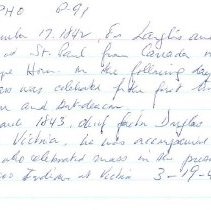 PHO P-91
ber 17. 1842, Frs Langlois and
d St. Paul from Canada
pe Horn. On the following day
ass was celebrated
on and Subdeacon.
arch 1843, chief factor Douglas
Victoria, he was accompanied
who celebrated mass in the
Indians at Victoria 3-19-4